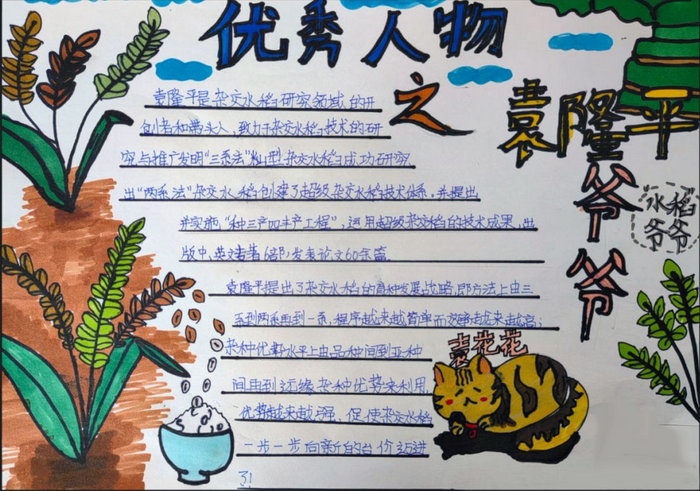 优秀人物
之
袁隆平
爷爷
水稻
爷爷
袁隆平是杂交水稻研究领域的开
创者和带头人，致力于杂交水稻技术的研
究与推广发明“三系法”籼型杂交水稻成功研究
出“两系法”杂交水稻创建了超级杂交水稻技术体系，并提出
并实施“种三产四丰产工程”，运用超级杂交稻的技术成果，出
版中、英文专著6部发表论文60余篇
袁隆平提出了杂交水稻的育种发展战略，即方法上由三
系到两系再到一系，程序越来越简单而效率越来越高；
杂种优势水平上由品种间到亚种
间再到远缘杂种优势来利用
优势越来越强，促使杂交水稻
一步一步向新的台价迈进
了!
花花